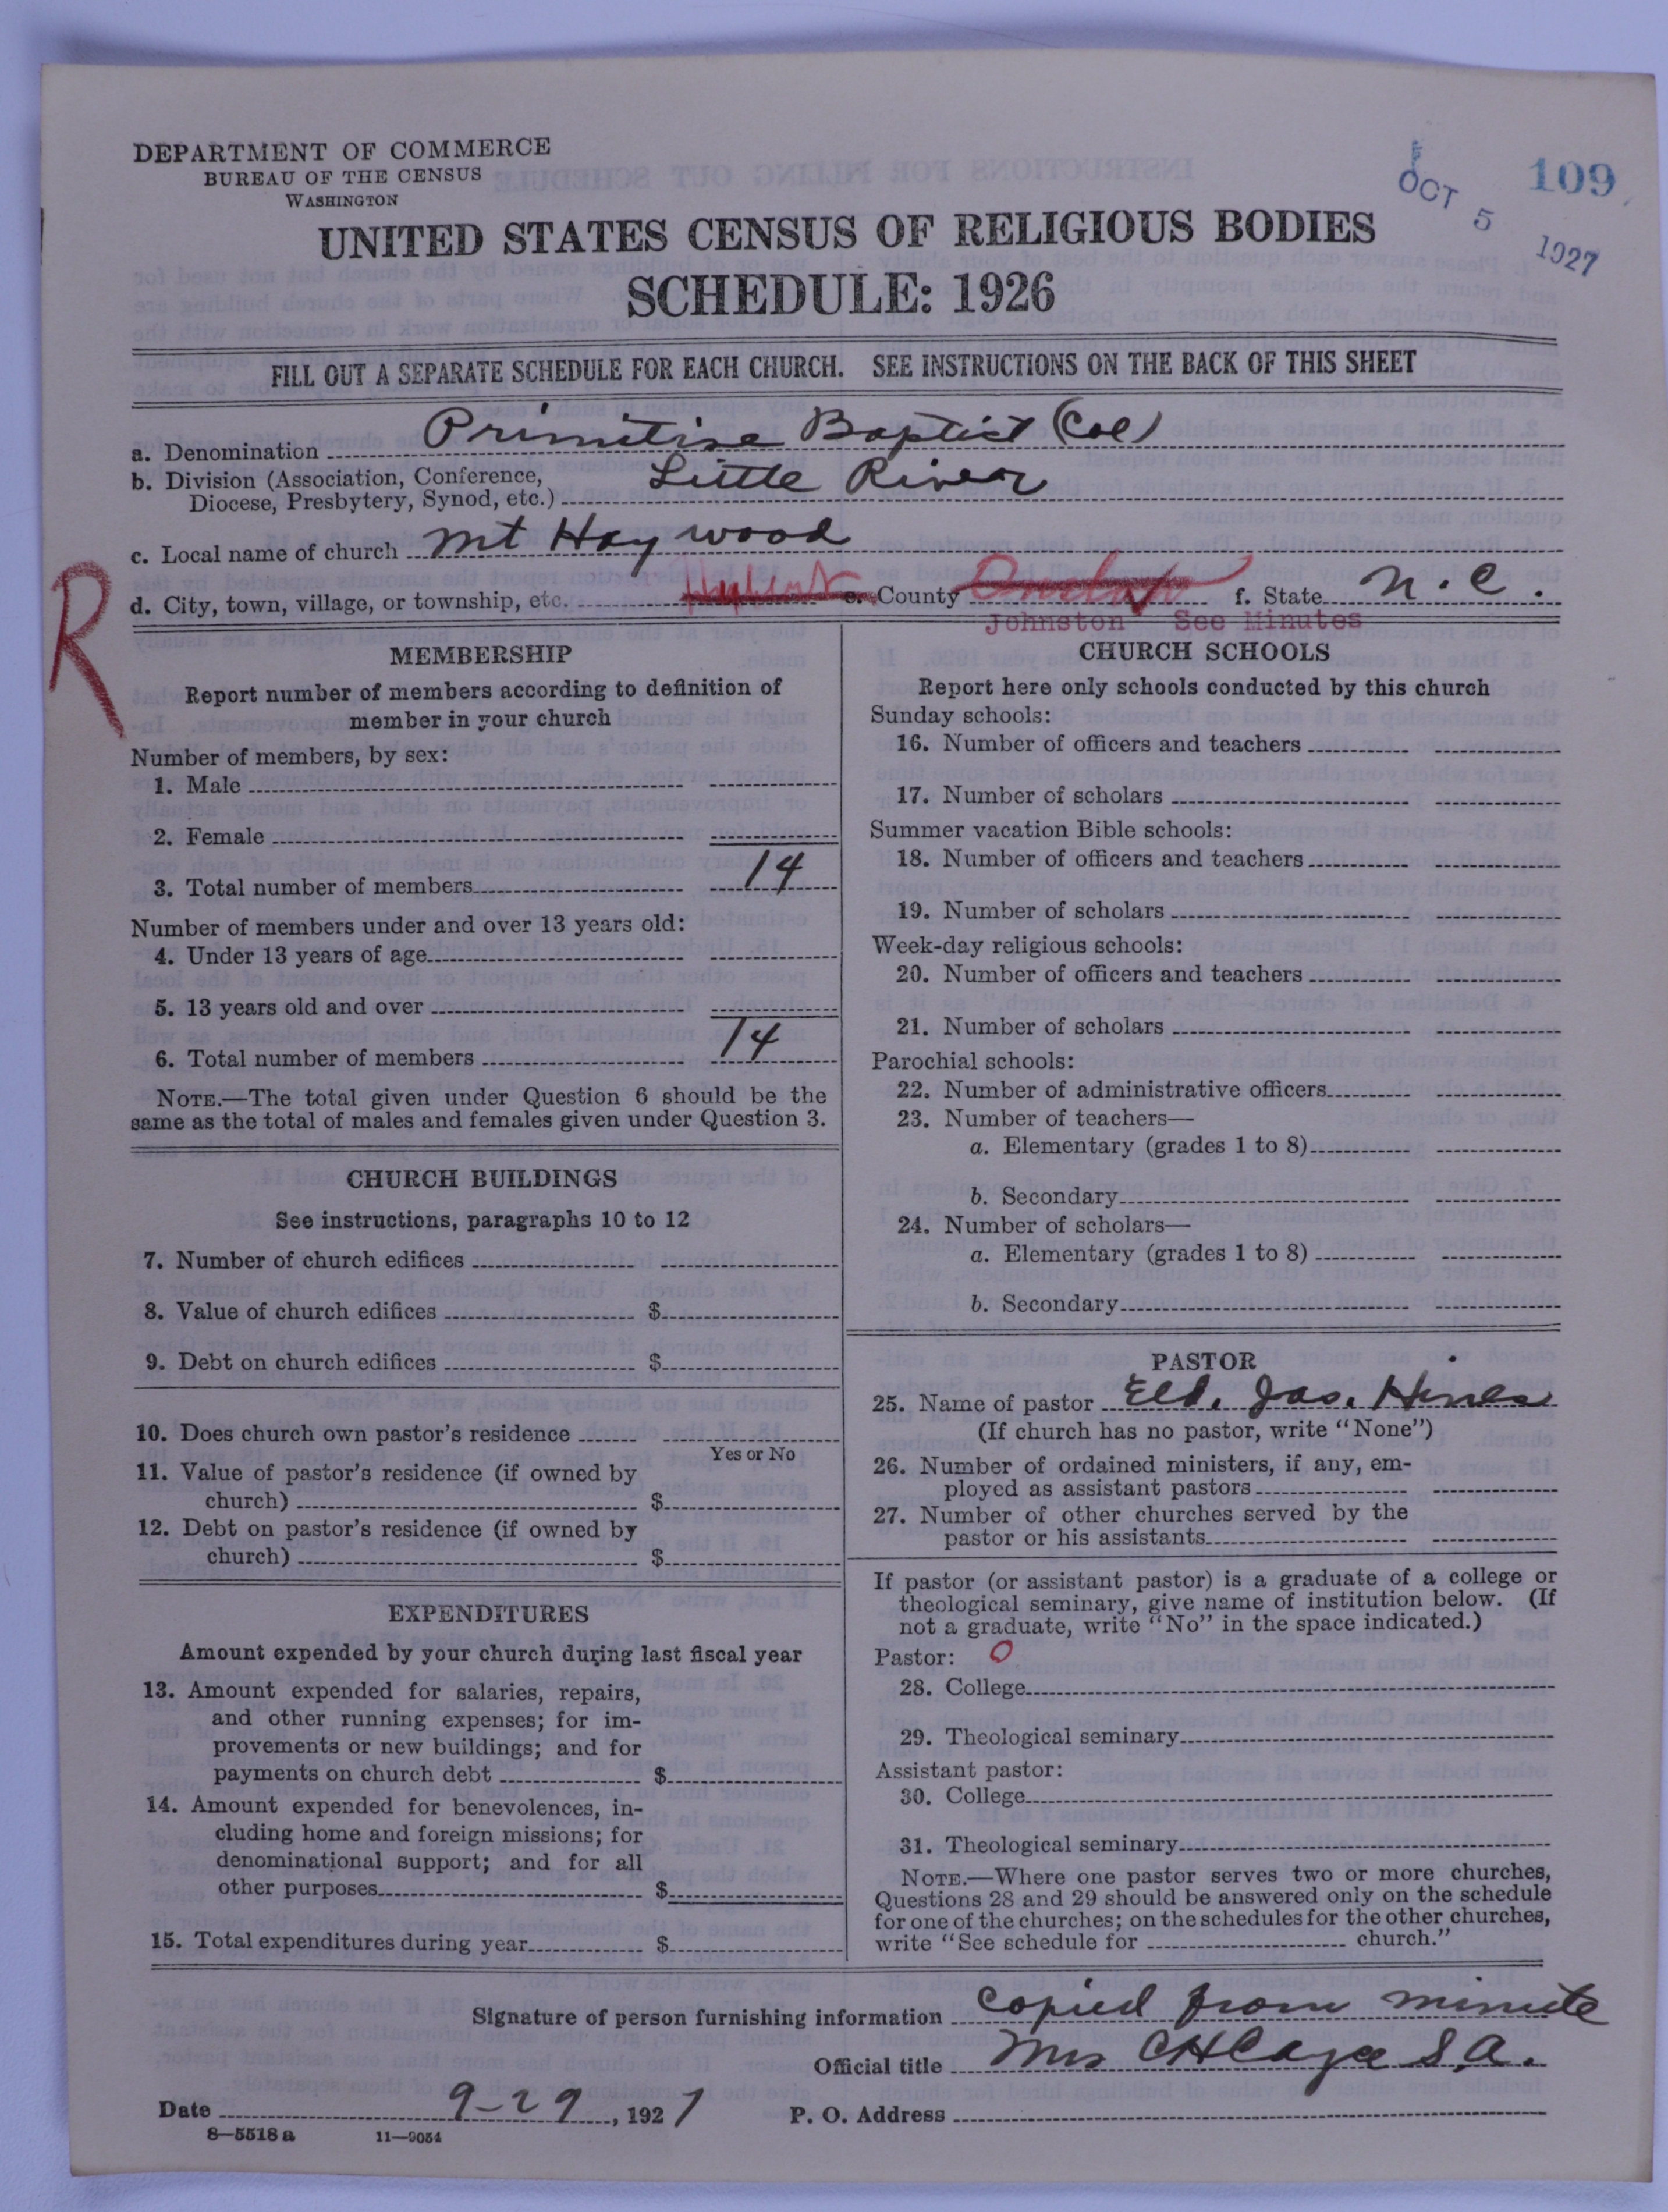 DEPARTMENT OF COMMERCE
BUREAU OF THE CENSUS
WASHINGTON
OCT 5 1927
109
UNITED STATES CENSUS OF RELIGIOUS BODIES
SCHEDULE: 1926
FILL OUT A SEPARATE SCHEDULE FOR EACH CHURCH. SEE INSTRUCTIONS ON THE BACK OF THIS SHEET
a. Denomination Primitive Baptist (Col)
b. Division (Association, Conference,
Diocese, Presbytery, Synod, etc.) Little River
c. Local name of church Mt Haywood
d. City, town, village, or township, etc. e. County f. State N.C.
Johnston See Minutes
R
MEMBERSHIP
Report number of members according to definition of
member in your church
Number of members, by sex:
1. Male
2. Female
3. Total number of members 14
Number of members under and over 13 years old:
4. Under 13 years of age
5. 13 years old and over
6. Total number of members 14
NOTE.—The total given under Question 6 should be the
same as the total of males and females given under Question 3.
CHURCH BUILDINGS
See instructions, paragraphs 10 to 12
7. Number of church edifices
8. Value of church edifices $
9. Debt on church edifices $
10. Does church own pastor's residence
Yes or No
11. Value of pastor's residence (if owned by
church) $
12. Debt on pastor's residence (if owned by
church) $
EXPENDITURES
Amount expended by your church during last fiscal year
13. Amount expended for salaries, repairs,
and other running expenses; for im-
provements or new buildings; and for
payments on church debt $
14. Amount expended for benevolences, in-
cluding home and foreign missions; for
denominational support; and for all
other purposes $
15. Total expenditures during year $
CHURCH SCHOOLS
Report here only schools conducted by this church
Sunday schools:
16. Number of officers and teachers
17. Number of scholars
Summer vacation Bible schools:
18. Number of officers and teachers
19. Number of scholars
Week-day religious schools:
20. Number of officers and teachers
21. Number of scholars
Parochial schools:
22. Number of administrative officers
23. Number of teachers—
a. Elementary (grades 1 to 8)
b. Secondary
24. Number of scholars—
a. Elementary (grades 1 to 8)
b. Secondary
PASTOR
25. Name of pastor Eld. Jas. Hines
(If church has no pastor, write "None")
26. Number of ordained ministers, if any, em-
ployed as assistant pastors
27. Number of other churches served by the
pastor or his assistants
If pastor (or assistant pastor) is a graduate of a college or
theological seminary, give name of institution below. (If
not a graduate, write "No" in the space indicated.)
Pastor: O
28. College
29. Theological seminary
Assistant pastor:
30. College
31. Theological seminary
NOTE.—Where one pastor serves two or more churches,
Questions 28 and 29 should be answered only on the schedule
for one of the churches; on the schedules for the other churches,
write "See schedule for church."
Signature of person furnishing information Copied from minute
Official title Mrs CH S.A.
Date 9-29, 1927 P. O. Address
8—5518 a 11—9054